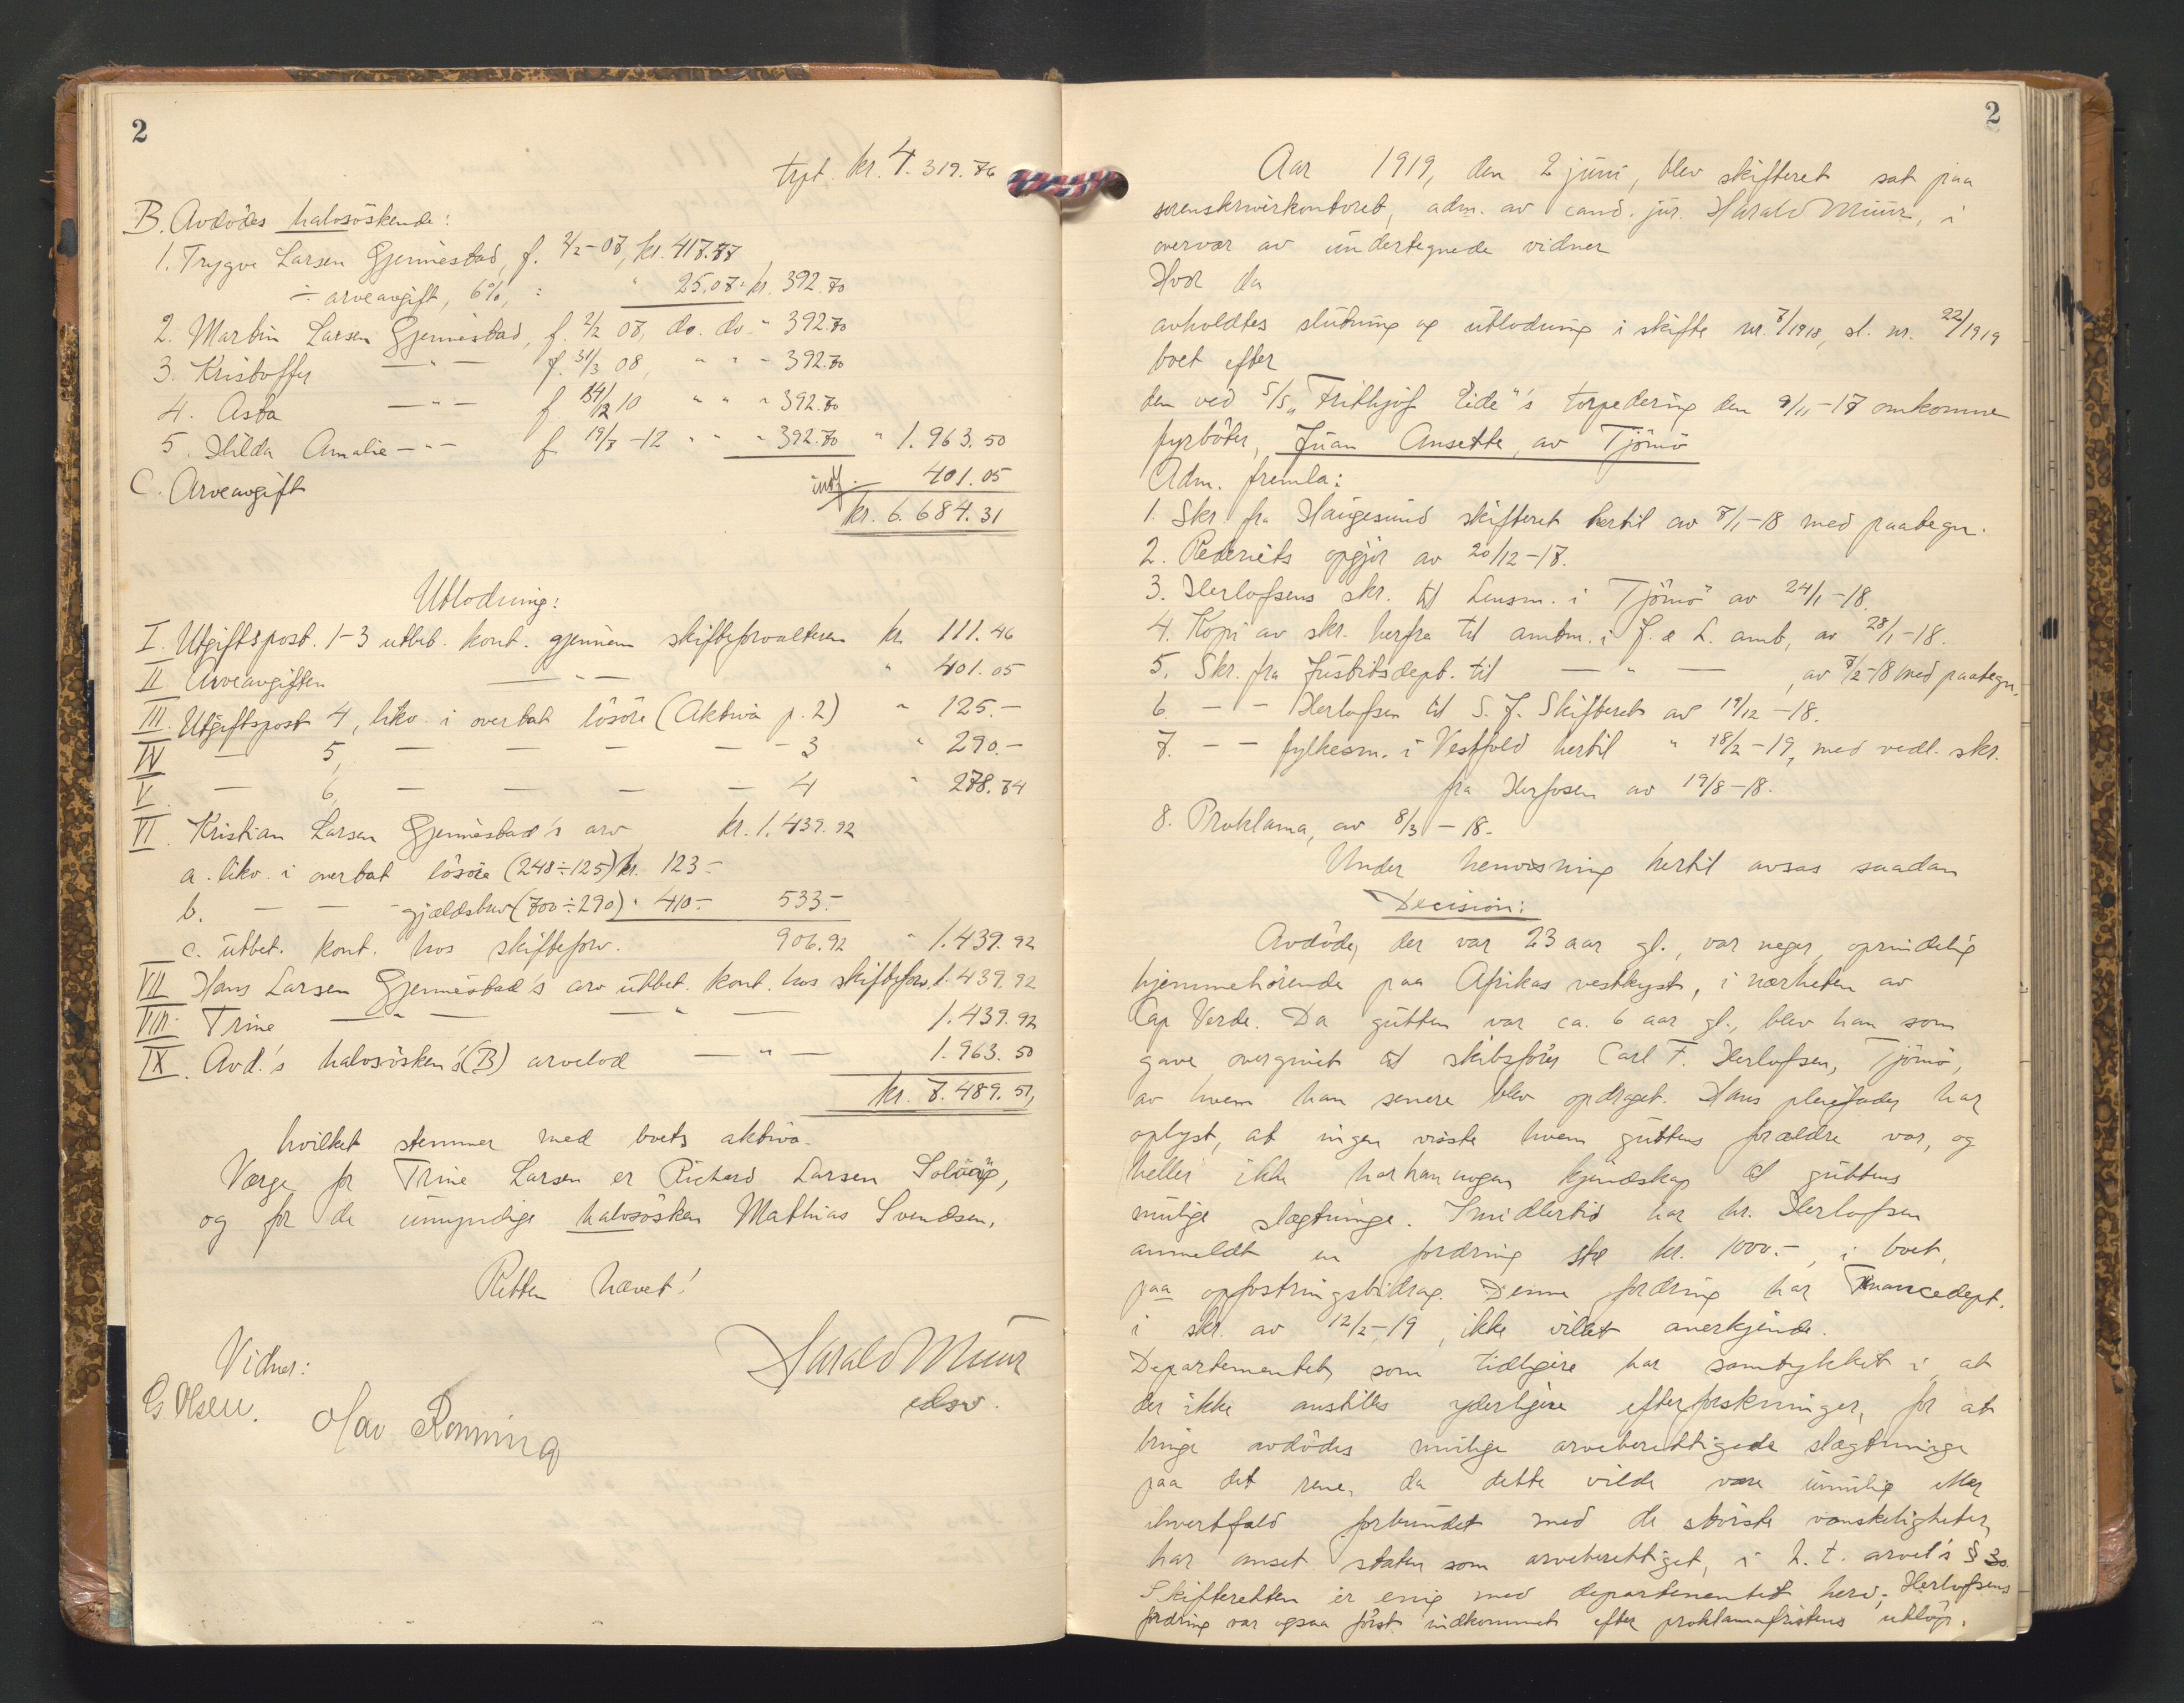 2
trpt. kr. 4.319.76
B. Avdödes halvsöskende:
1. Trygve Larsen Gjennestad, f. 2/2-07, kr. 417.77
÷ arveavgift, 6%, : " 25.07 - kr. 392.70
2. Martin Larsen Gjennestad, f. 2/2 07, do. do " 392.70
3. Kristoffer — " — f. 31/3 08, " " - 392.70
4. Asta — " — f. 14/12 10 " " " 392.70
5. Hilda Amalie — " — f 19/3 -12 " " " 392.70 " 1.963.50
C. Arveavgift 401.05
kr. 6.684.31
Utlodning:
I. Utgiftspost. 1-3 utbet. kont. gjennem skifteforvalteren kr. 111.46
II Arveavgiften — " — " 401.05
III. Utgiftspost 4, likv. i overtat lösöre (Aktiva p. 2) " 125.-
IV — 5, — — — — - 3 " 290.-
V. — 6, — — — — 4 " 278.74
VI. Kristian Larsen Gjennestad's arv kr. 1.439.92
a. likv. i overtat lösöre (248÷125) kr. 123-
b. — — - gjældsbrev (700÷290) " 410.- 533.-
c. utbet. kont. hos skifteforv. 906.92 " 1.439.92
VII Hans Larsen Gjennestad's arv utbet. kont. hos skifteforv. 1.439.92
VIII. Trine — " — — " — 1.439.92
IX. Avd.'s halvsösken's (B) arvelod — " — 1.963.50
kr. 7.489.51,
hvilket stemmer med boets aktiva.
Værge for Trine Larsen er Richard Larsen
og for de umyndige halvsösken Mathias Svendsen.
Retten hævet!
Vidner:
G Olsen.
Olav Rönning
Harald Muur
edsv.
2
Aar 1919, den 2 juni, blev skifteret sat paa
sorenskriverkontoret, adm. av cand. jur. Harald Muur, i
overvær av undertegnede vidner
Hvor da
avholdtes slutning og utlodning i skifte nr. 7/1918, sl. nr. 22/1919
boet efter
den ved S/S "Frithjof Eide"'s torpedering den 9/11-17 omkomne
fyrböter, Juan Ansette, av Tjömö
Adm. fremla:
1. Skr. fra Haugesund skifteret hertil av 7/1-18 med paategn.
2. Rederiets opgjör av 20/12-17.
3. Herlofsens skr. til Lensm. i Tjömö av 24/1-18.
4. Kopi av skr. herfra til amtm. i J. & L. amt, av 28/1-18.
5. Skr. fra Justitsdept. til — " — , av 7/2-18 med paategn.
6. - - Herlofsen til S. J. Skifteret av 19/12-18.
7. - - fylkesm. i Vestfold hertil " 18/2-19, med vedl. skr.
fra Herlofsen av 19/8-18.
8. Proklama, av 8/3-18.
Under henvisning hertil avsas saadan
Decision:
Avdöde, der var 23 aar gl., var neger, oprindelig
hjemmehörende paa Afrikas vestkyst, i nærheten av
Cap Verde. Da gutten var ca. 6 aar gl., blev han som
gave overgivet til skibsförer Carl F. Herlofsen, Tjömö,
av hvem han senere blev opdraget. Hans pleiefader har
oplyst, at ingen visste hvem guttens forældre var, og
heller ikke har han nogen kjendskap til guttens
mulige slægtninge. Imidlertid har hr. Herlofsen
anmeldt en fordring stor kr. 1000.-, i boet,
paa opfostringsbidrag. Denne fordring har Finansdept.
i skr. av 12/2-19, ikke villet anerkjende.
Departementet, som tidligere har samtykket i at
der ikke anstilles yderligere efterforskninger, for at
bringe avdödes mulige arveberettigede slægtninge
paa det rene, da dette vilde være umulig eller
ihvertfald forbundet med de störste vanskeligheter,
har anset staten som arveberettiget, i h. t. arvel's § 30.
Skifteretten er enig med departementet heri; Herlofsens
fordring var ogsaa först indkommet efter proklamafristens utlöp.